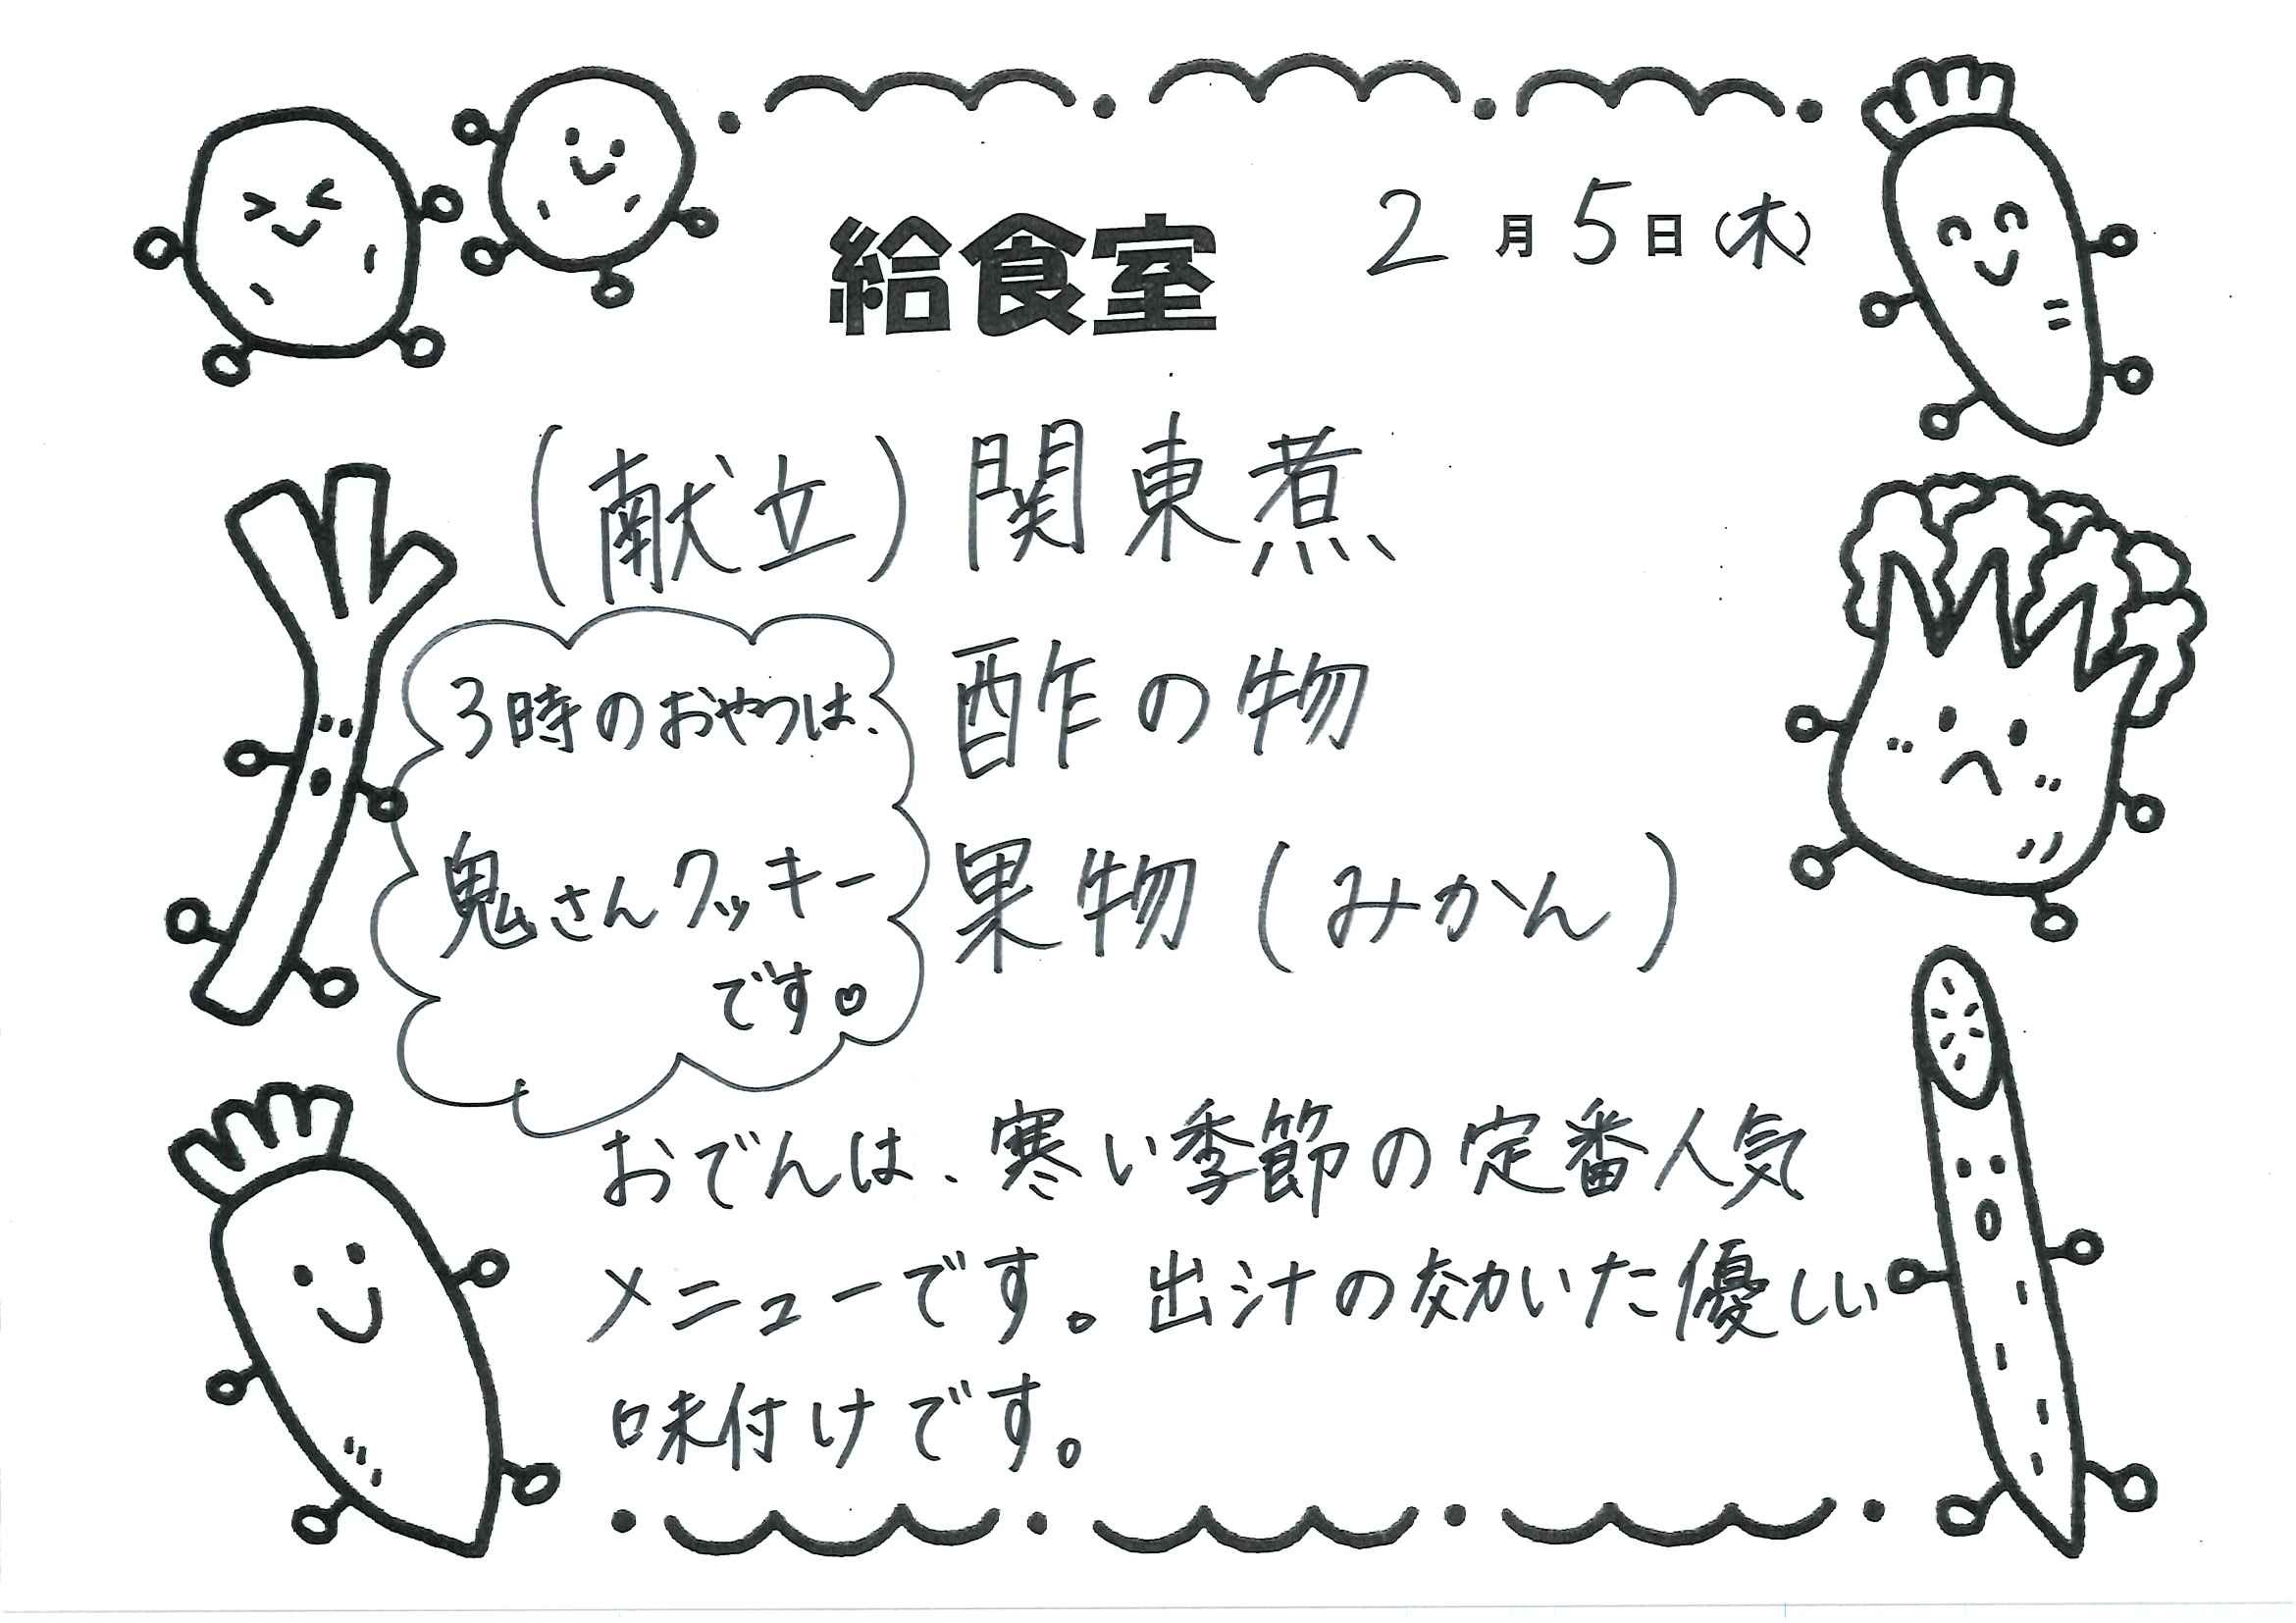 給食室
2月5日(木)
(献立)関東煮
酢の物
果物(みかん)
3時のおやつは、
鬼さんクッキー
です♡
おでんは、寒い季節の定番人気
メニューです。出汁の効いた優しい
味付けです。